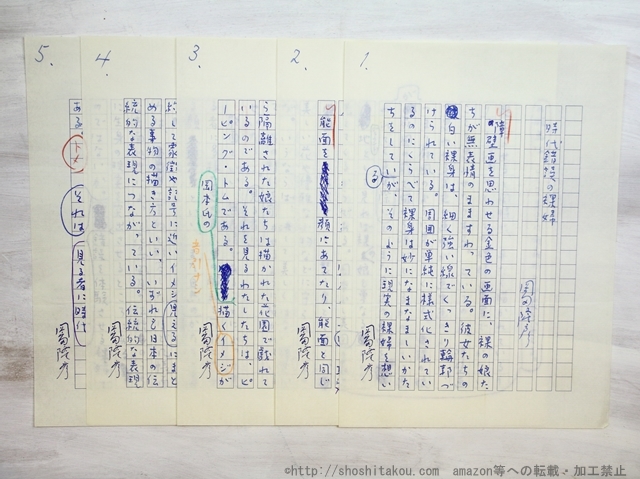 1.
時代錯誤の裸婦
障壁画を思わせる金色の画面に、裸の娘た
ちが無表情のまますわっている。彼女たちの
白い裸身は、細く強い線でくっきり輪郭づ
けられている。周囲が単純に様式化されてい
るのにくらべて裸身は妙になまなましいかた
ちをしている
が、そのように現実の裸婦を想い
2.
能面を
顔にあてたり、能面と同じ
3.
ら隔離された娘たちは描かれた花園で戯れて
いるのである。それを見るわたしたちは、ピ
ーピング・トムである。
描くイメジが
4.
める事物の描き方といい、いずれも日本の伝
統的な表現につながっている。伝統的な表現
5.
ある。
それは
見る者に時代
©http://shoshitakou.com amazon等への転載・加工禁止